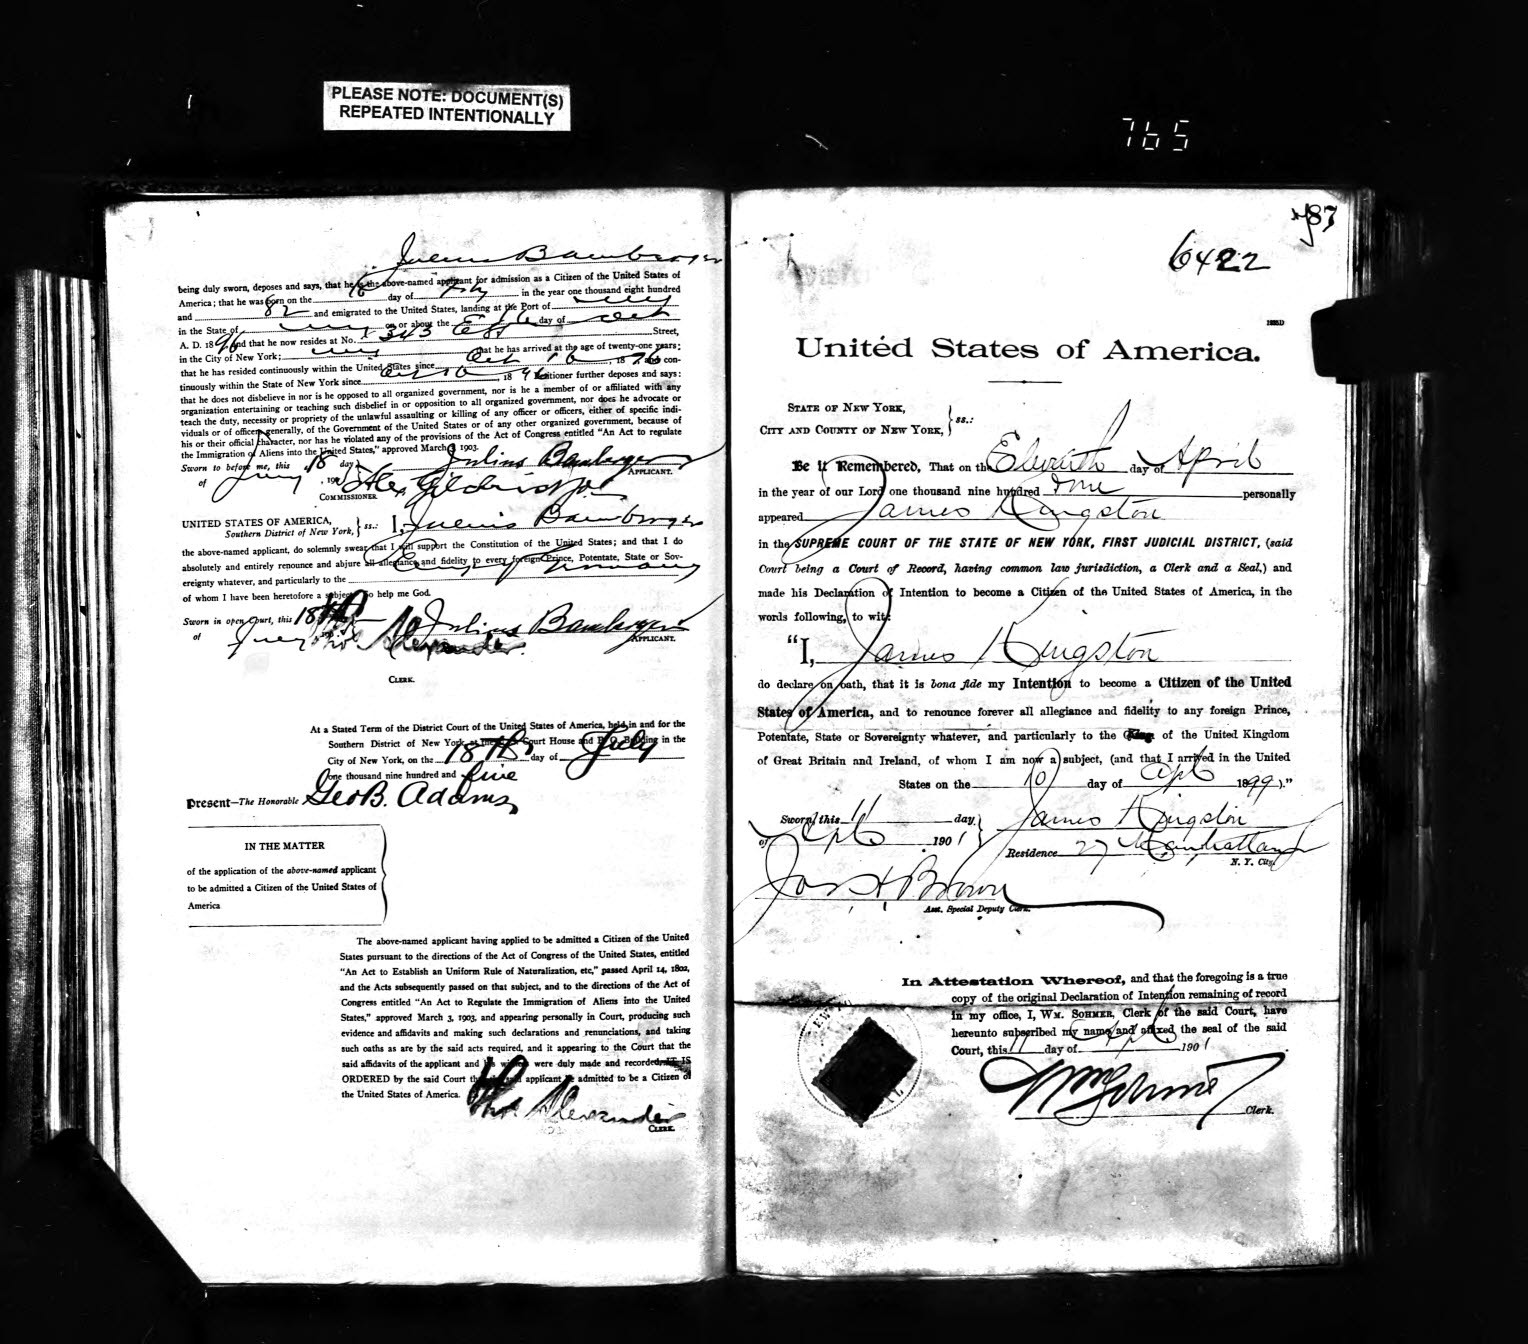 PLEASE NOTE: DOCUMENT(S)
REPEATED INTENTIONALLY
765
Julius Bamberger
being duly sworn, deposes and says, that he is the above-named applicant for admission as a Citizen of the United States of
America; that he was born on the day of in the year one thousand eight hundred
and 82 and emigrated to the United States, landing at the Port of
in the State of on or about the day of Oct
A. D. 1896 and that he now resides at No. 343 E Street,
in the City of New York; that he has arrived at the age of twenty-one years;
that he has resided continuously within the United States since Oct 18 and con-
tinuously within the State of New York since , 18 Petitioner further deposes and says:
that he does not disbelieve in nor is he opposed to all organized government, nor is he a member of or affiliated with any
organization entertaining or teaching such disbelief in or opposition to all organized government, nor does he advocate or
teach the duty, necessity or propriety of the unlawful assaulting or killing of any officer or officers, either of specific indi-
viduals or of officers generally, of the Government of the United States or of any other organized government, because of
his or their official character, nor has he violated any of the provisions of the Act of Congress entitled "An Act to regulate
the Immigration of Aliens into the United States," approved March 3, 1903.
Sworn to before me, this 18 day Julius Bamberger
of July , 190 APPLICANT.
COMMISSIONER.
UNITED STATES OF AMERICA,
Southern District of New York, ss.: I, Julius Bamberger
the above-named applicant, do solemnly swear that I will support the Constitution of the United States; and that I do
absolutely and entirely renounce and abjure all allegiance and fidelity to every foreign Prince, Potentate, State or Sov-
ereignty whatever, and particularly to the Emp of Germany
of whom I have been heretofore a subject. So help me God.
Sworn in open Court, this 18th Julius Bamberger
of July Thos Alexander APPLICANT.
CLERK.
At a Stated Term of the District Court of the United States of America, held in and for the
Southern District of New York, at the Court House and P. O. Building in the
City of New York, on the 18th day of July
one thousand nine hundred and five
Present—The Honorable Geo B. Adams
IN THE MATTER
of the application of the above-named applicant
to be admitted a Citizen of the United States of
America
The above-named applicant having applied to be admitted a Citizen of the United
States pursuant to the directions of the Act of Congress of the United States, entitled
"An Act to Establish an Uniform Rule of Naturalization, etc," passed April 14, 1802,
and the Acts subsequently passed on that subject, and to the directions of the Act of
Congress entitled "An Act to Regulate the Immigration of Aliens into the United
States," approved March 3, 1903, and appearing personally in Court, producing such
evidence and affidavits and making such declarations and renunciations, and taking
such oaths as are by the said acts required, and it appearing to the Court that the
said affidavits of the applicant and his witness were duly made and recorded, IT IS
ORDERED by the said Court that said applicant be admitted to be a Citizen of
the United States of America.
Thos Alexander
CLERK.
87
6422
United States of America.
STATE OF NEW YORK,
CITY AND COUNTY OF NEW YORK, ss.:
Be it Remembered, That on the Eleventh day of April
in the year of our Lord one thousand nine hundred one personally
appeared James Kingston
in the SUPREME COURT OF THE STATE OF NEW YORK, FIRST JUDICIAL DISTRICT, (said
Court being a Court of Record, having common law jurisdiction, a Clerk and a Seal,) and
made his Declaration of Intention to become a Citizen of the United States of America, in the
words following, to wit:
"I, James Kingston
do declare on oath, that it is bona fide my Intention to become a Citizen of the United
States of America, and to renounce forever all allegiance and fidelity to any foreign Prince,
Potentate, State or Sovereignty whatever, and particularly to the King of the United Kingdom
of Great Britain and Ireland, of whom I am now a subject, (and that I arrived in the United
States on the 10 day of Apl 1899)."
Sworn this 11 day James Kingston
of Apl 1901 Residence 27 Manhattan
N. Y. City.
Jas H Brown
Asst. Special Deputy Clerk.
In Attestation Whereof, and that the foregoing is a true
copy of the original Declaration of Intention remaining of record
in my office, I, WM. SOHMER, Clerk of the said Court, have
hereunto subscribed my name and affixed the seal of the said
Court, this 11 day of Apl 1901
Wm Sohmer
Clerk.